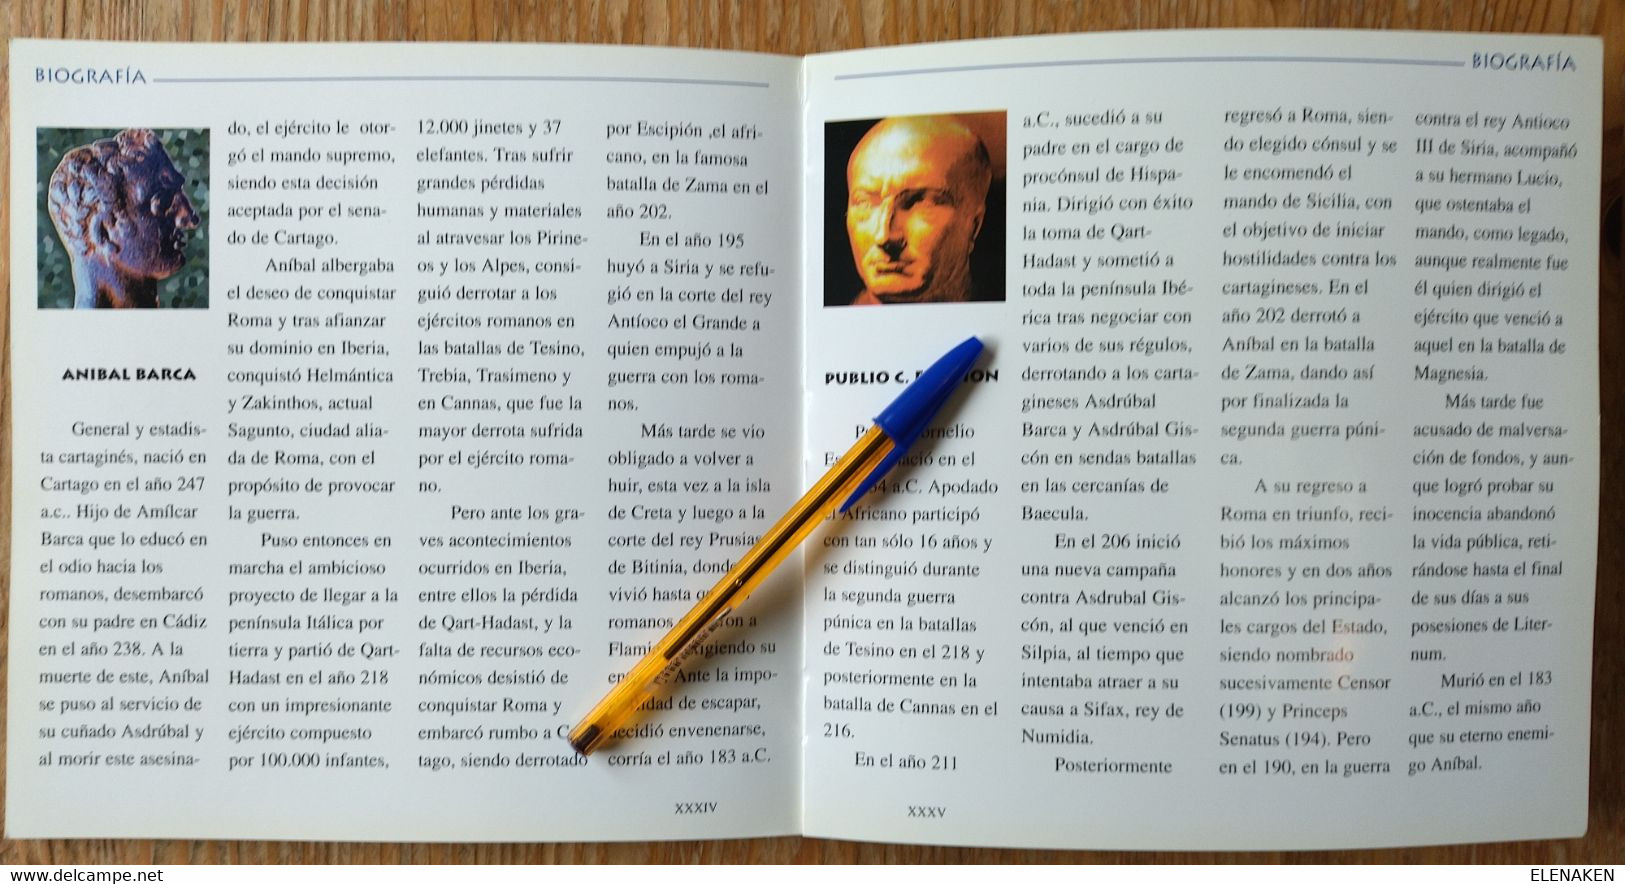 BIOGRAFÍA
ANIBAL BARCA
General y estadis-
ta cartaginés, nació en
Cartago en el año 247
a.c.. Hijo de Amílcar
Barca que lo educó en
el odio hacia los
romanos, desembarcó
con su padre en Cádiz
en el año 238. A la
muerte de este, Aníbal
se puso al servicio de
su cuñado Asdrúbal y
al morir este asesina-
do, el ejército le otor-
gó el mando supremo,
siendo esta decisión
aceptada por el sena-
do de Cartago.
Aníbal albergaba
el deseo de conquistar
Roma y tras afianzar
su dominio en Iberia,
conquistó Helmántica
y Zakinthos, actual
Sagunto, ciudad alia-
da de Roma, con el
propósito de provocar
la guerra.
Puso entonces en
marcha el ambicioso
proyecto de llegar a la
península Itálica por
tierra y partió de Qart-
Hadast en el año 218
con un impresionante
ejército compuesto
por 100.000 infantes,
12.000 jinetes y 37
elefantes. Tras sufrir
grandes pérdidas
humanas y materiales
al atravesar los Pirine-
os y los Alpes, consi-
guió derrotar a los
ejércitos romanos en
las batallas de Tesino,
Trebia, Trasimeno y
en Cannas, que fue la
mayor derrota sufrida
por el ejército roma-
no.
Pero ante los gra-
ves acontecimientos
ocurridos en Iberia,
entre ellos la pérdida
de Qart-Hadast, y la
falta de recursos eco-
nómicos desistió de
conquistar Roma y
embarcó rumbo a
tago, siendo derrotado
por Escipión ,el afri-
cano, en la famosa
batalla de Zama en el
año 202.
En el año 195
huyó a Siria y se refu-
gió en la corte del rey
Antíoco el Grande a
quien empujó a la
guerra con los roma-
nos.
Más tarde se vio
obligado a volver a
huir, esta vez a la isla
de Creta y luego a la
corte del rey Prusias
de Bitinia, donde
vivió hasta
romanos a
su
Ante la impo-
de escapar,
decidió envenenarse,
corría el año 183 a.C.
XXXIV
BIOGRAFÍA
PUBLIO C.
nació en el
a.C. Apodado
el Africano participó
con tan sólo 16 años y
se distinguió durante
la segunda guerra
púnica en la batallas
de Tesino en el 218 y
posteriormente en la
batalla de Cannas en el
216.
En el año 211
a.C., sucedió a su
padre en el cargo de
procónsul de Hispa-
nia. Dirigió con éxito
la toma de Qart-
Hadast y sometió a
toda la península Ibé-
rica tras negociar con
varios de sus régulos,
derrotando a los carta-
gineses Asdrúbal
Barca y Asdrúbal Gis-
cón en sendas batallas
en las cercanías de
Baecula.
En el 206 inició
una nueva campaña
contra Asdrubal Gis-
cón, al que venció en
Silpia, al tiempo que
intentaba atraer a su
causa a Sifax, rey de
Numidia.
Posteriormente
regresó a Roma, sien-
do elegido cónsul y se
le encomendó el
mando de Sicilia, con
el objetivo de iniciar
hostilidades contra los
cartagineses. En el
año 202 derrotó a
Aníbal en la batalla
de Zama, dando así
por finalizada la
segunda guerra púni-
ca.
A su regreso a
Roma en triunfo, reci-
bió los máximos
honores y en dos años
alcanzó los principa-
les cargos del Estado,
siendo nombrado
sucesivamente Censor
(199) y Princeps
Senatus (194). Pero
en el 190, en la guerra
contra el rey Antioco
III de Siria, acompañó
a su hermano Lucio,
que ostentaba el
mando, como legado,
aunque realmente fue
él quien dirigió el
ejército que venció a
aquel en la batalla de
Magnesia.
Más tarde fue
acusado de malversa-
ción de fondos, y aun-
que logró probar su
inocencia abandonó
la vida pública, reti-
rándose hasta el final
de sus días a sus
posesiones de Liter-
num.
Murió en el 183
a.C., el mismo año
que su eterno enemi-
go Aníbal.
XXXV
www.delcampe.net
ELENAKEN